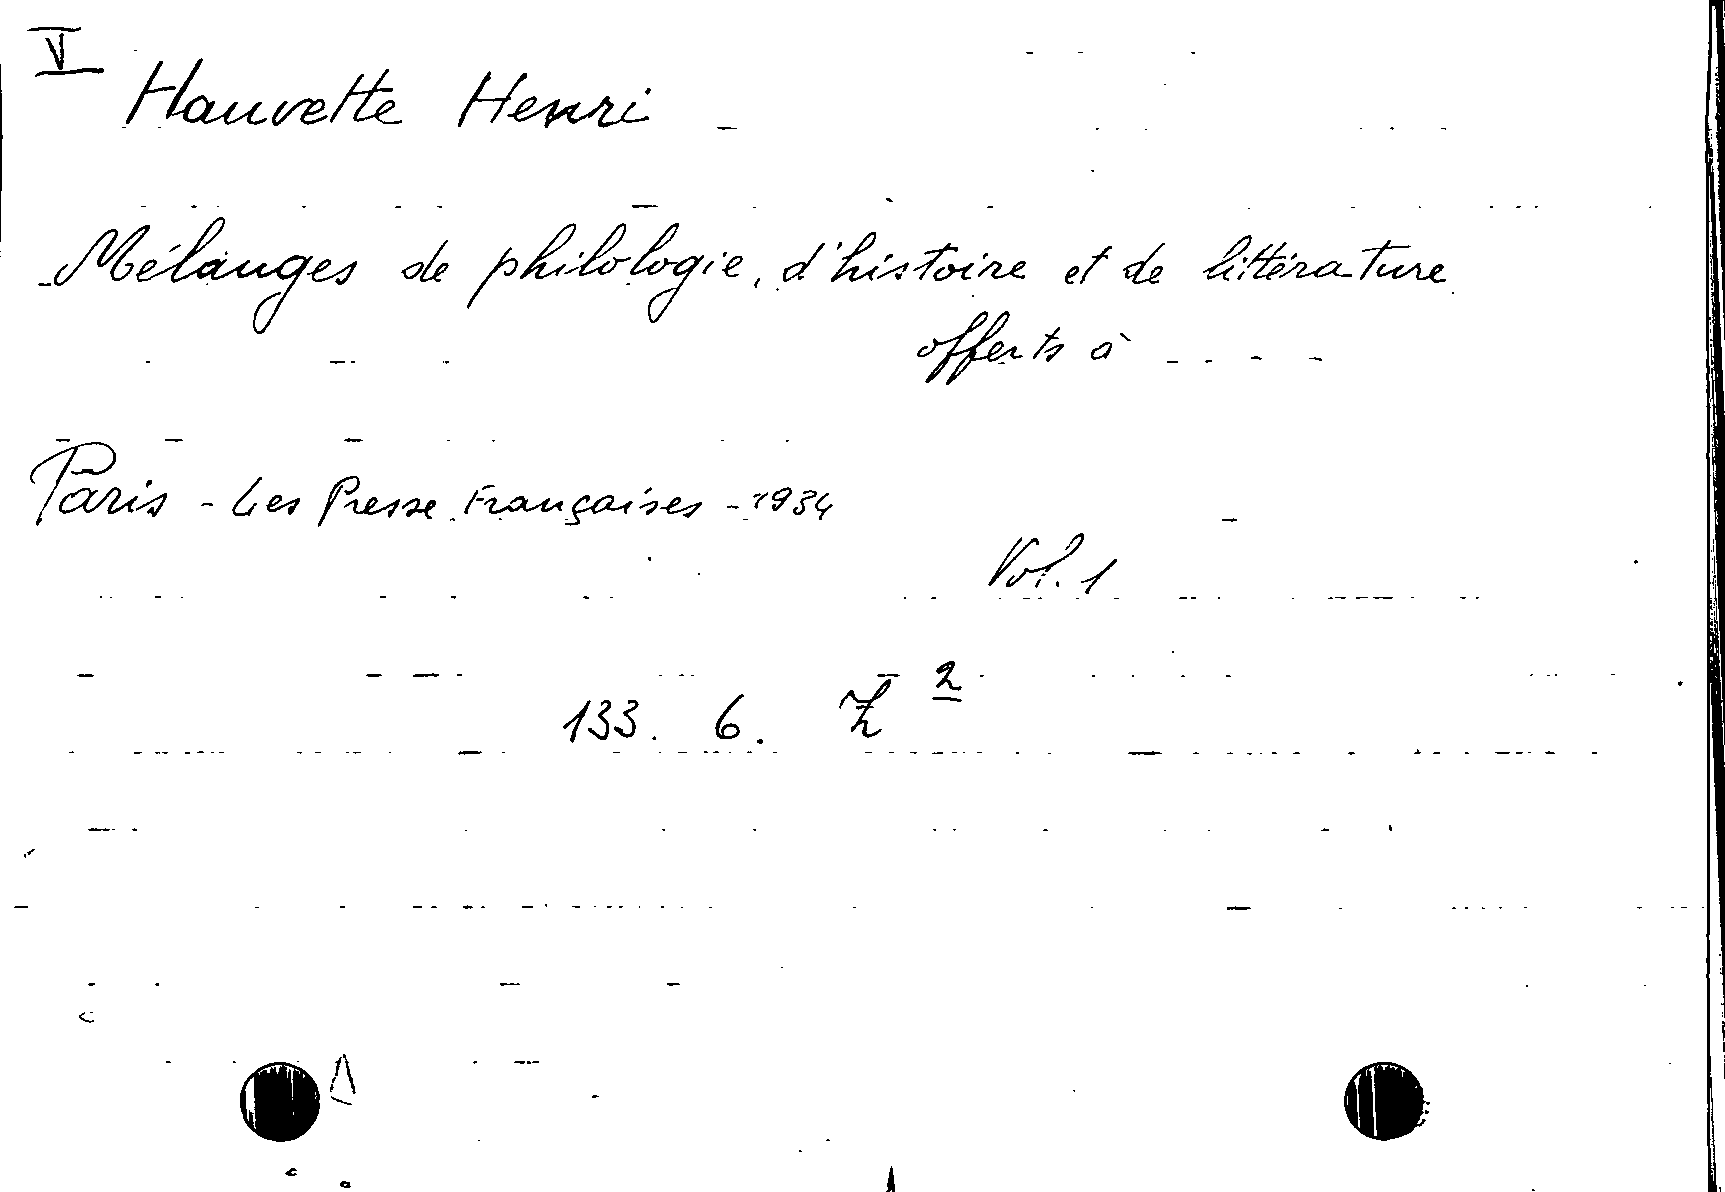 V
Hauvette Henri
Mélanges de philologie, d'histoire et de littérature
offerts à - - - -
Paris - Les Presse Françaises - 1934
Vol. 1
133. 6. Z 2